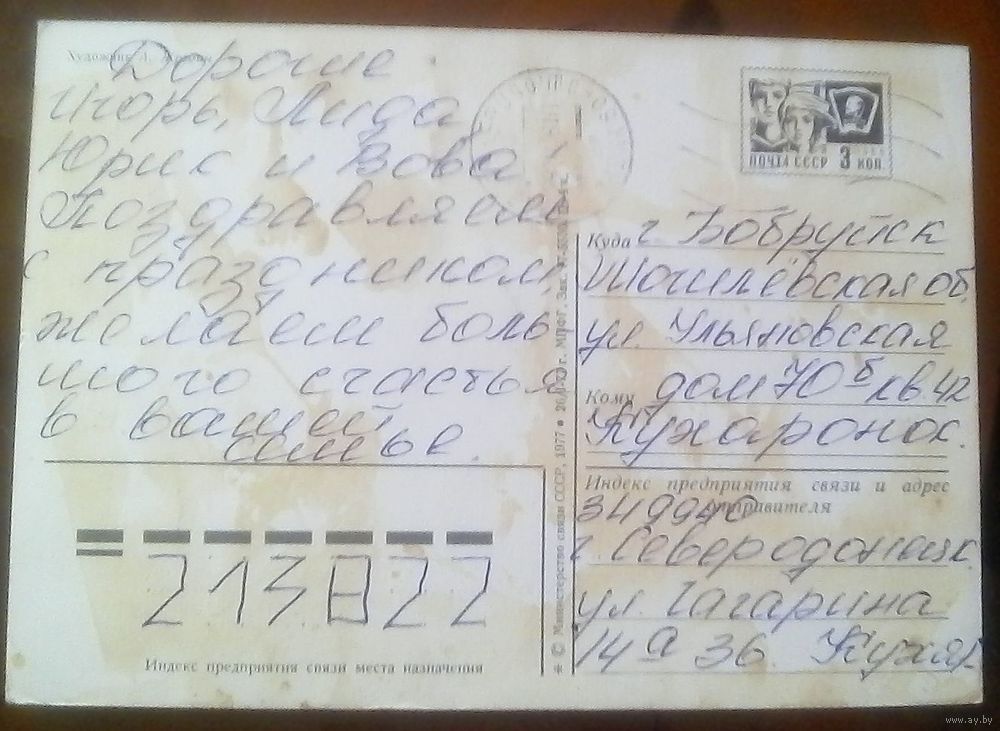 Художник Л.
Дорогие
Игорь, Лида
Юрис и Вова!
Поздравляем
с праздником,
желаем боль-
шого счастья
в вашей
семье.
ПОЧТА СССР 3 коп.
Куда г. Бобруйск
Могилёвская об.
ул. Ульяновская
Кому дом 70 б кв. 42
Кухаронок.
Индекс предприятия связи и адрес
отправителя
349940
г. Северодонецк
ул. Гагарина
14 а 36. Кухар
213822
Индекс предприятия связи места назначения
* © Министерство связи СССР, 1977 • г. МПФГ. Зак.
www.ay.by